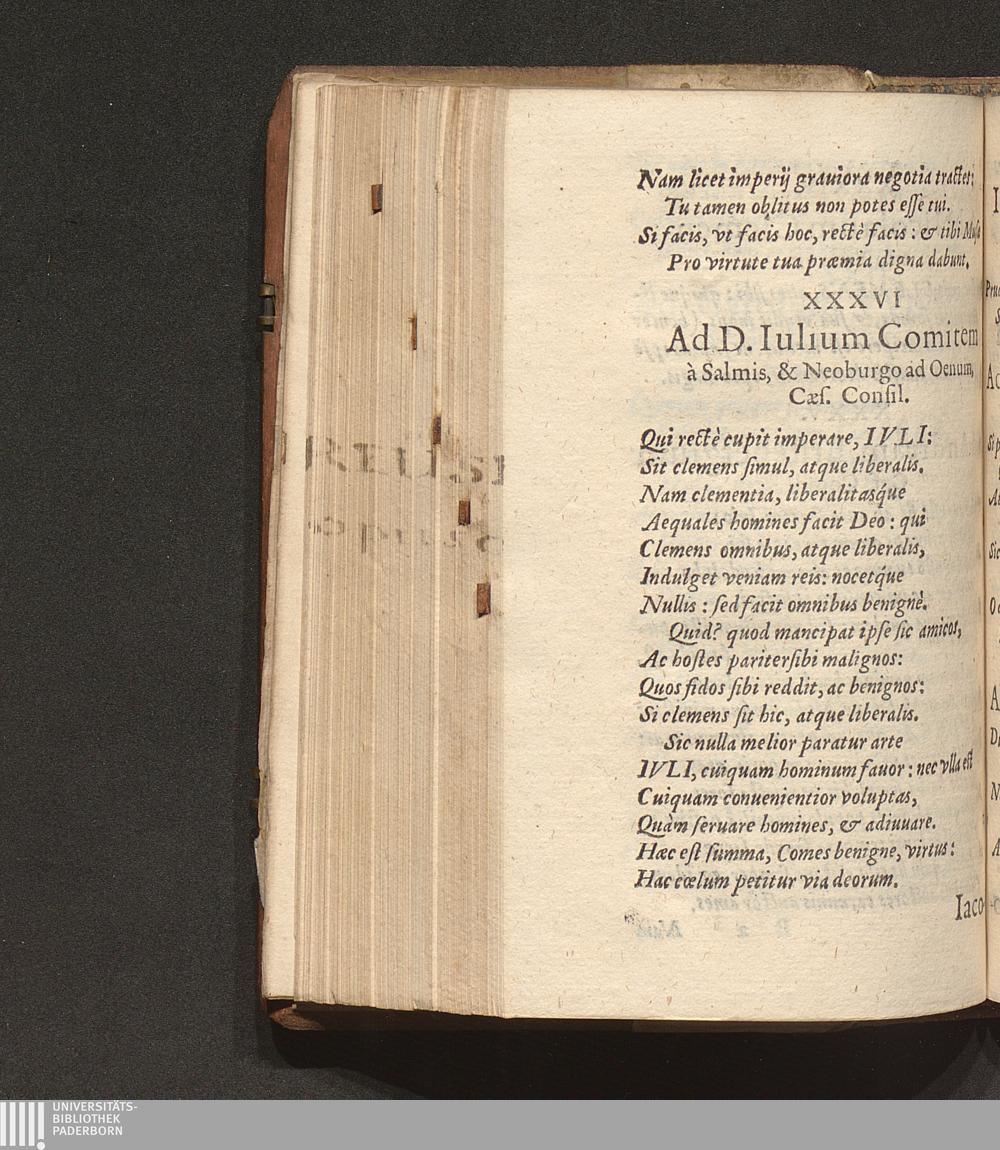 Nam licet imperij grauiora negotia tractet;
Tu tamen oblitus non potes eſſe tui.
Si facis, vt facis hoc, rectè facis : & tibi Muſa
Pro virtute tua præmia digna dabunt.
XXXVI
Ad D. Iulium Comitem
à Salmis, & Neoburgo ad Oenum,
Cæſ. Conſil.
Qui rectè cupit imperare, IVLI:
Sit clemens ſimul, atque liberalis.
Nam clementia, liberalitasq́ue
Aequales homines facit Deo : qui
Clemens omnibus, atque liberalis,
Indulget veniam reis: nocetq́ue
Nullis : ſed facit omnibus benignè.
Quid? quod mancipat ipſe ſic amicos,
Ac hoſtes pariter ſibi malignos:
Quos fidos ſibi reddit, ac benignos:
Si clemens ſit hic, atque liberalis.
Sic nulla melior paratur arte
IVLI, cuiquam hominum fauor : nec vlla eſt
Cuiquam conuenientior voluptas,
Quàm ſeruare homines, & adiuuare.
Hæc eſt ſumma, Comes benigne, virtus:
Hac cœlum petitur via deorum.
Iaco-
UNIVERSITÄTS-
BIBLIOTHEK
PADERBORN